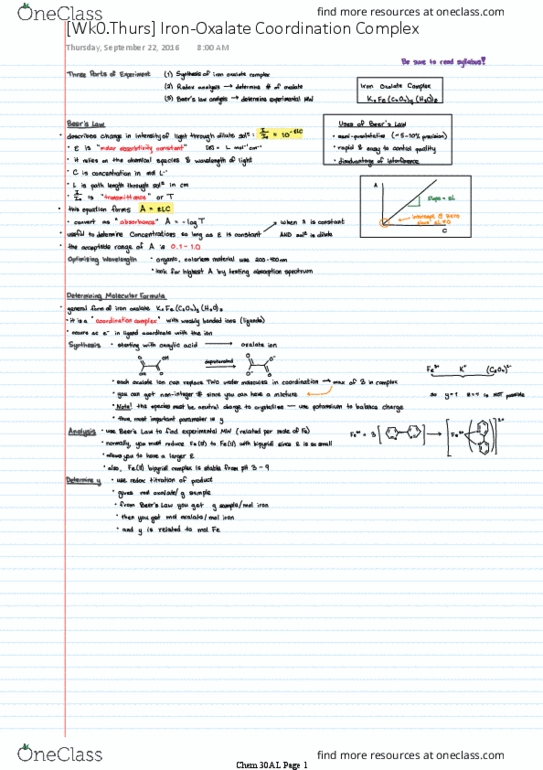 OneClass
find more resources at oneclass.com
[Wk0.Thurs] Iron-Oxalate Coordination Complex
Thursday, September 22, 2016 8:00 AM
Be sure to read syllabus!
Three Parts of Experiment (1) Synthesis of iron oxalate complex
(2) Redox analysis → determine # of oxalate
(3) Beer's law analysis → determine experimental MW
Iron Oxalate Complex
KxFe(C2O4)y(H2O)z
Beer's Law
• describes change in intensity of light through dilute sol
• ε is "molar absorptivity constant" [ε] = L mol⁻¹ cm⁻¹
• it relies on the chemical species & wavelength of light
• C is concentration in mol L⁻¹
• L is path length through sol in cm
is "transmittance" or T
• this equation forms A = εLC
• convert as "absorbance" A = -log T
• useful to determine concentrations so long as ε is constant
when λ is constant
AND sol is dilute
• the acceptable range of A is 0.1-1.0
Optimizing Wavelength • organic, colorless material use 200-400nm
• look for highest A by testing absorption spectrum
Uses of Beer's Law
• semi-quantitative (~5-10% precision)
• rapid & easy to control quality
• disadvantage of interference
A
slope = εL
intercept @ zero
C
Determining Molecular Formula
• general form of iron oxalate KxFe(C2O4)y(H2O)z
• it is a "coordination complex" with weakly bonded ions (ligands)
• occurs as e⁻ in ligand coordinate with the ion
Synthesis • starting with oxalic acid → oxalate ion
deprotonated
• each oxalate ion can replace TWO water molecules in coordination → max of 3 in complex
• you can get non-integer # since you can have a mixture
• Note! the species must be neutral charge to crystallize — use potassium to balance charge
• thus, most important parameter is y
Fe³⁺ K⁺ (C2O4)²⁻
is NOT possible
Analysis • use Beer's Law to find experimental MW (related per mole of Fe)
• normally, you must reduce Fe(III) to Fe(II) with bipyridil since ε is so small
• allows you to have a larger ε
• also, Fe(II) bipyridil complex is stable from pH 3-9
Determine y • use redox titration of product
• gives mol oxalate/g sample
• from Beer's Law you get g sample/mol iron
• then you get mol oxalate/mol iron
• and y is related to mol Fe
OneClass
find more resources at oneclass.com
Chem 30AL Page 1